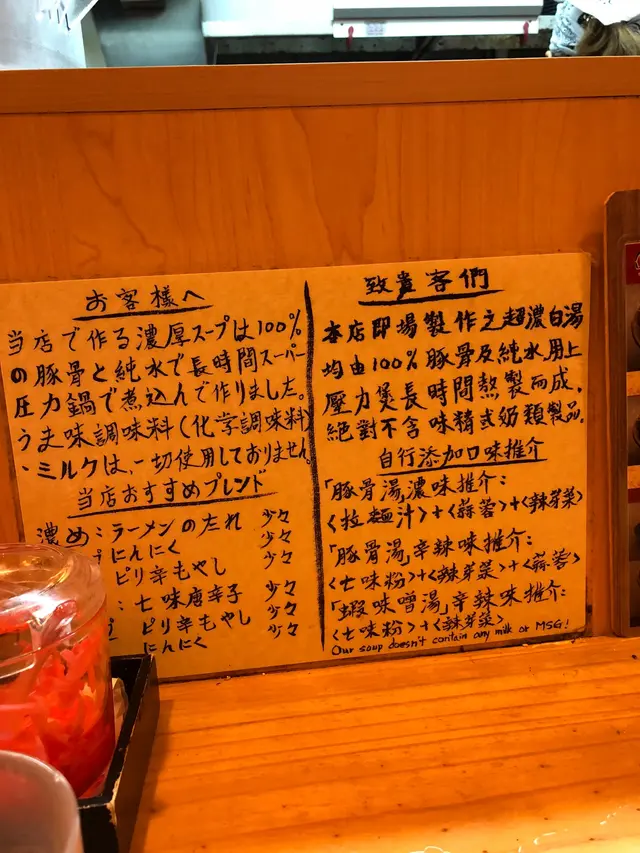 お客様へ
当店で作る濃厚スープは100%
の豚骨と純水で長時間スーパー
圧力鍋で煮込んで作りました。
うま味調味料(化学調味料)
、ミルクは、一切使用しておりません。
当店おすすめブレンド
濃め:ラーメンのたれ 少々
にんにく 少々
ピリ辛もやし 少々
:七味唐辛子 少々
ピリ辛もやし 少々
にんにく 少々
致貴客們
本店即場製作之超濃白湯
均由100%豚骨及純水用上
壓力煲長時間熬製而成,
絕對不含味精或奶類製品。
自行添加口味推介
「豚骨湯」濃味推介:
<拉麵汁>+<蒜蓉>+<辣芽菜>
「豚骨湯」辛辣味推介:
<七味粉>+<辣芽菜>+<蒜蓉>
「蝦味噌湯」辛辣味推介:
<七味粉>+<辣芽菜>
Our soup doesn't contain any milk or MSG!